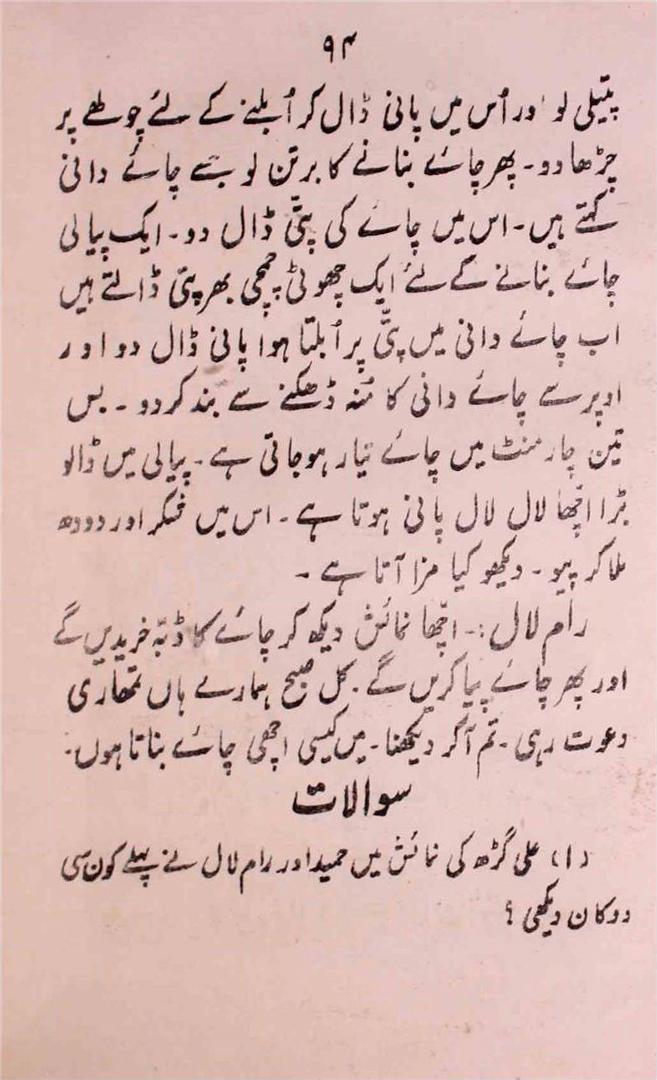 ۹۴
پتیلی لو اور اُس میں پانی ڈال کر اُبلنے کے لئے چولھے پر
چڑھا دو۔ پھر چائے بنانے کا برتن لو جسے چائے دانی
کہتے ہیں۔ اس میں چائے کی پتّی ڈال دو۔ ایک پیالی
چائے بنانے کے لئے ایک چھوٹی چمچی بھر پتّی ڈالتے ہیں
اب چائے دانی میں پتّی پر اُبلتا ہوا پانی ڈال دو اور
اوپر سے چائے دانی کا مُنہ ڈھکنے سے بند کر دو ۔ بس
تین چار منٹ میں چائے تیار ہو جاتی ہے۔ پیالی میں ڈالو
بڑا اچّھا لال لال پانی ہوتا ہے۔ اس میں شکر اور دودھ
ملا کر پیو ۔ دیکھو کیا مزا آتا ہے ۔
رام لال :۔ اچّھا نمائش دیکھ کر چائے کا ڈبّہ خریدیں گے
اور پھر چائے پیا کریں گے۔ کل صبح ہمارے ہاں تمھاری
دعوت رہی ۔ تم آکر دیکھنا۔ میں کیسی اچھی چائے بناتا ہوں۔
سوالات
(۱) علی گڑھ کی نمائش میں حمید اور رام لال نے پہلے کون سی
دوکان دیکھی ؟